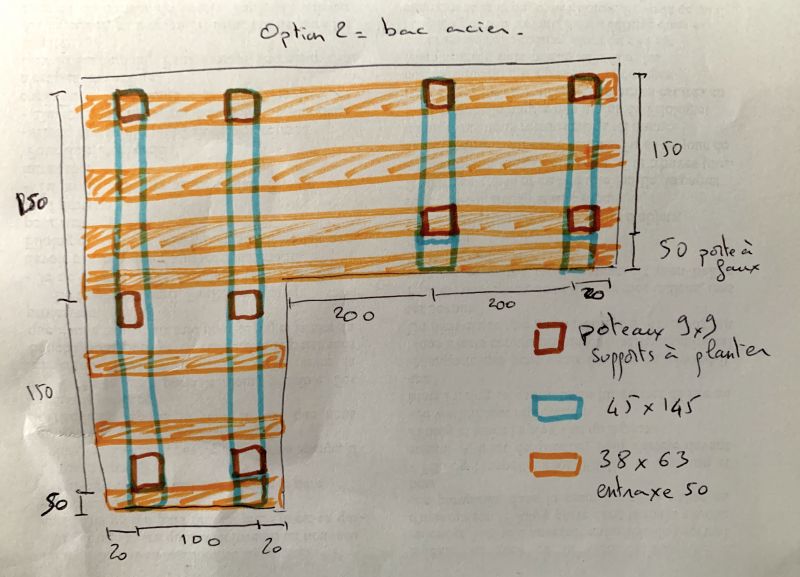 Option 2 = bac acier.
150
150
50 porte à
faux
200
200
20
poteaux 9x9
supports à planter
150
45 x 145
38 x 63
entraxe 50
50
20
100
20